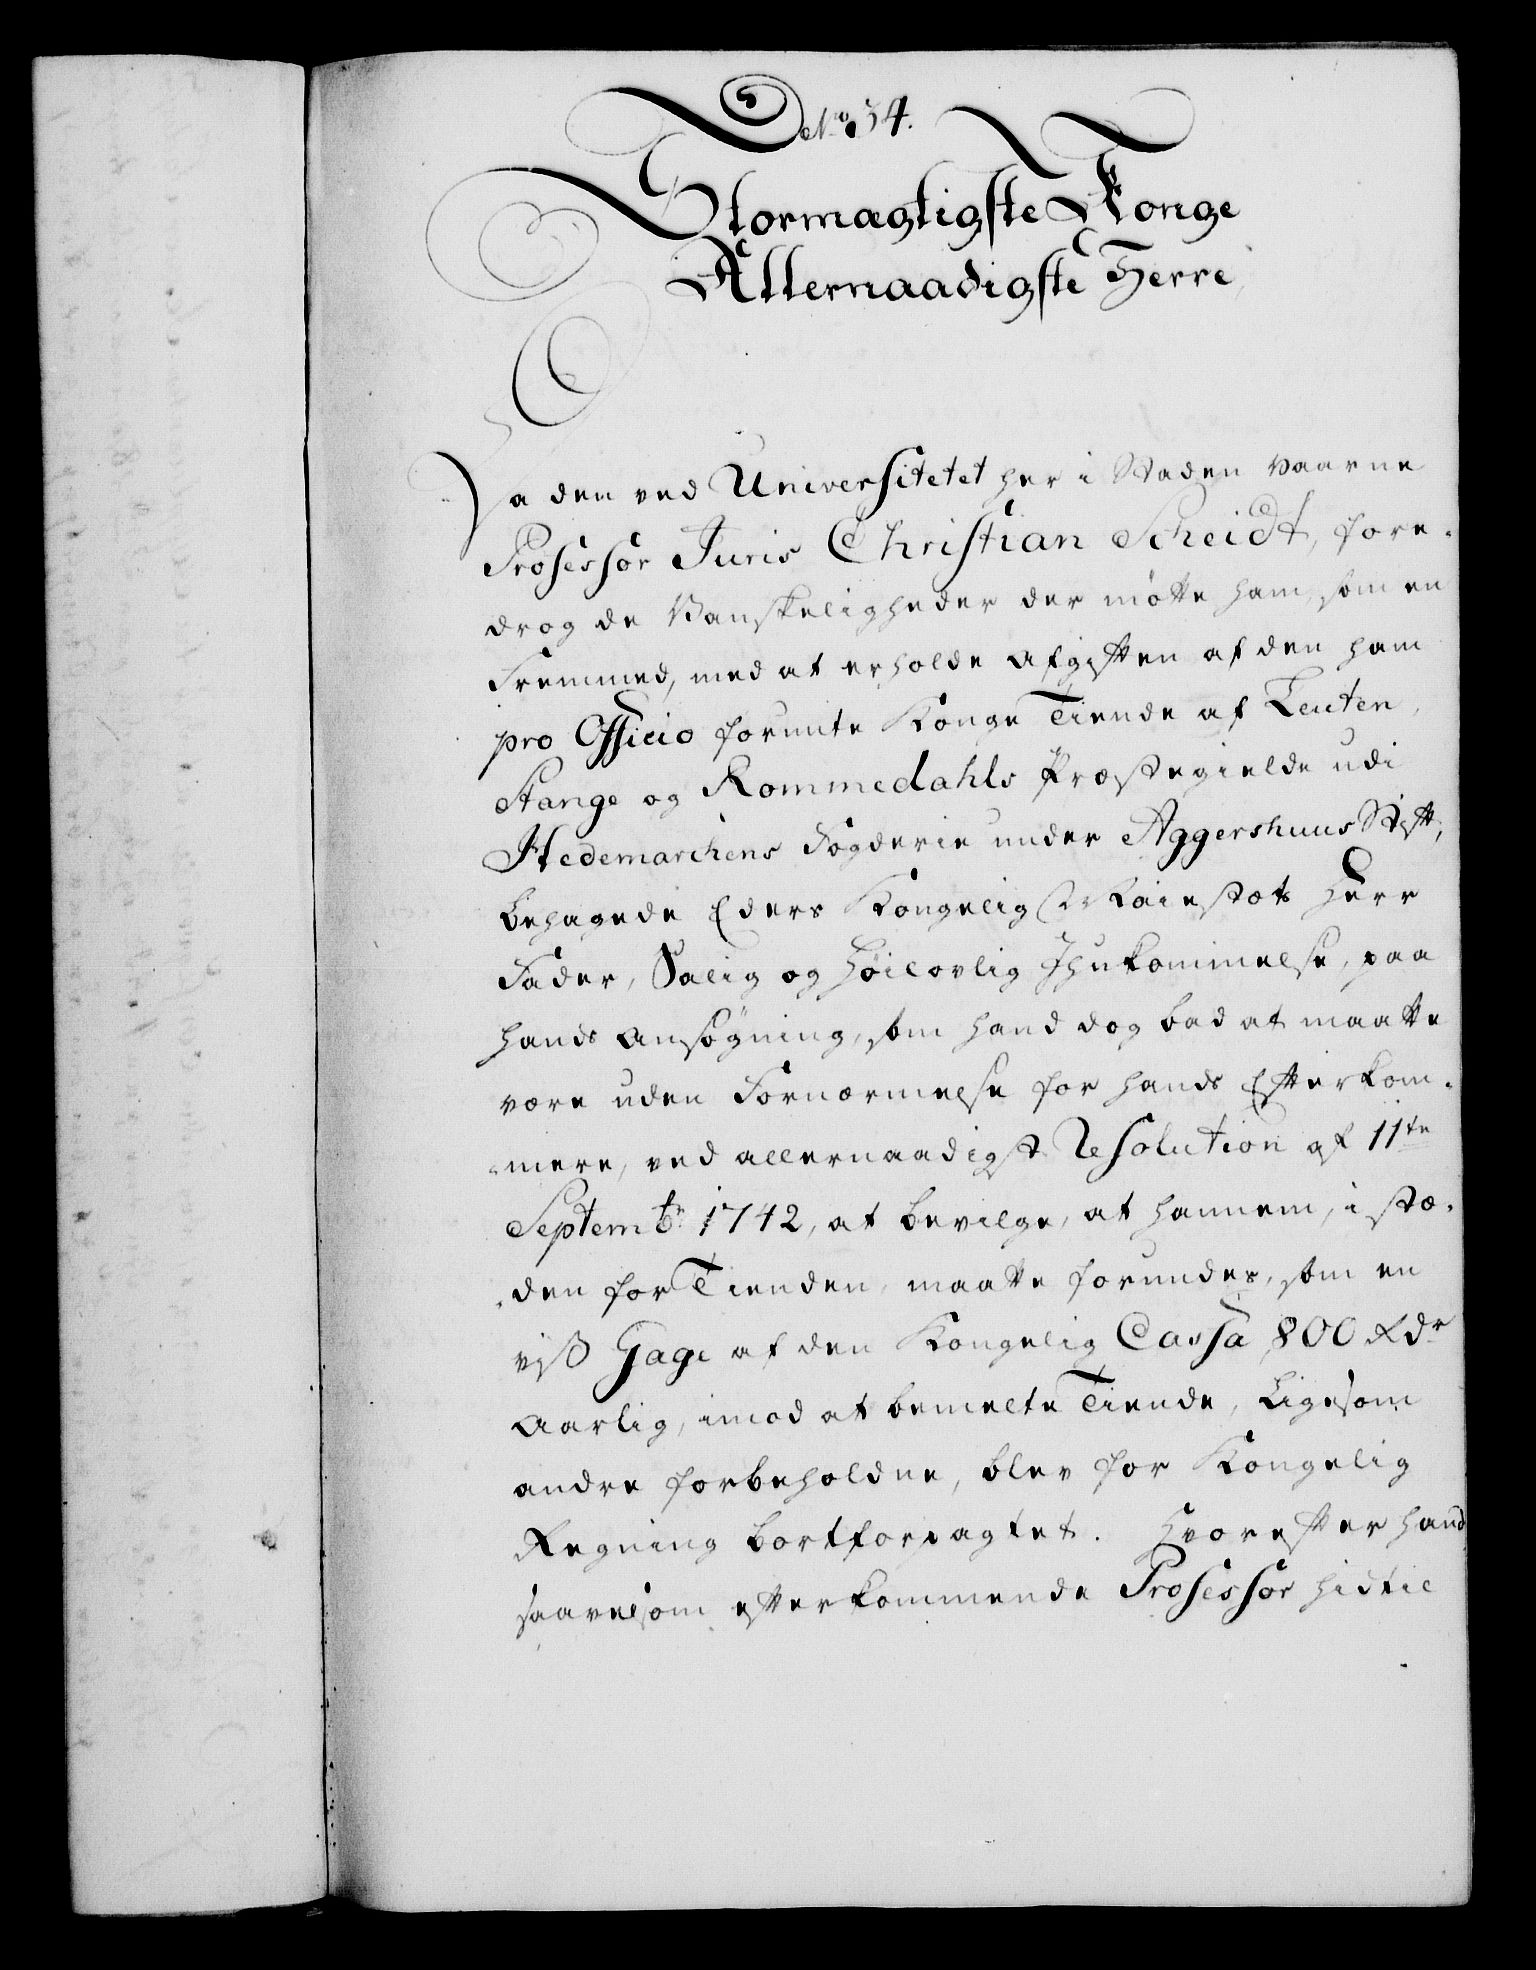 No. 34.
Stormægtigste Konge
Allernaadigste Herre,
Da den ved Universitetet her i Stadenværne
Professor Juris Christian Scheidt, fore-
drog de Vanskeligheder der mötte ham, som en
Fremmed, med at erholde Afgiften af den ham
pro Officio forunte Konge Tiende af Leuten,
Stange og Rommedahls Præstegield udi
Hedemarchens Fogderie under Aggershuus Stift,
behagede Eders Kongelig Maiestæts Herr
Fader, Salig og Höilovlig Ihukommelse, paa
hands Ansögning, som hand dog bad at maatte
være uden Fornærmelse for hands Efterkom-
mere, ved allernaadigst Resolution af 11te
Septembr. 1742, at bevilge, at hannem, i stæ-
den for Tienden, maatte forundes, som en
viß Gage af den Kongelig Cassa 800 Rdr
Aarlig, imod at bemelte Tiende, Ligesom
andre forbeholdne, blev for Kongelig
Regning bortforpagtet. Hvorefter hand
saavelsom efterkommende Professor hidtil